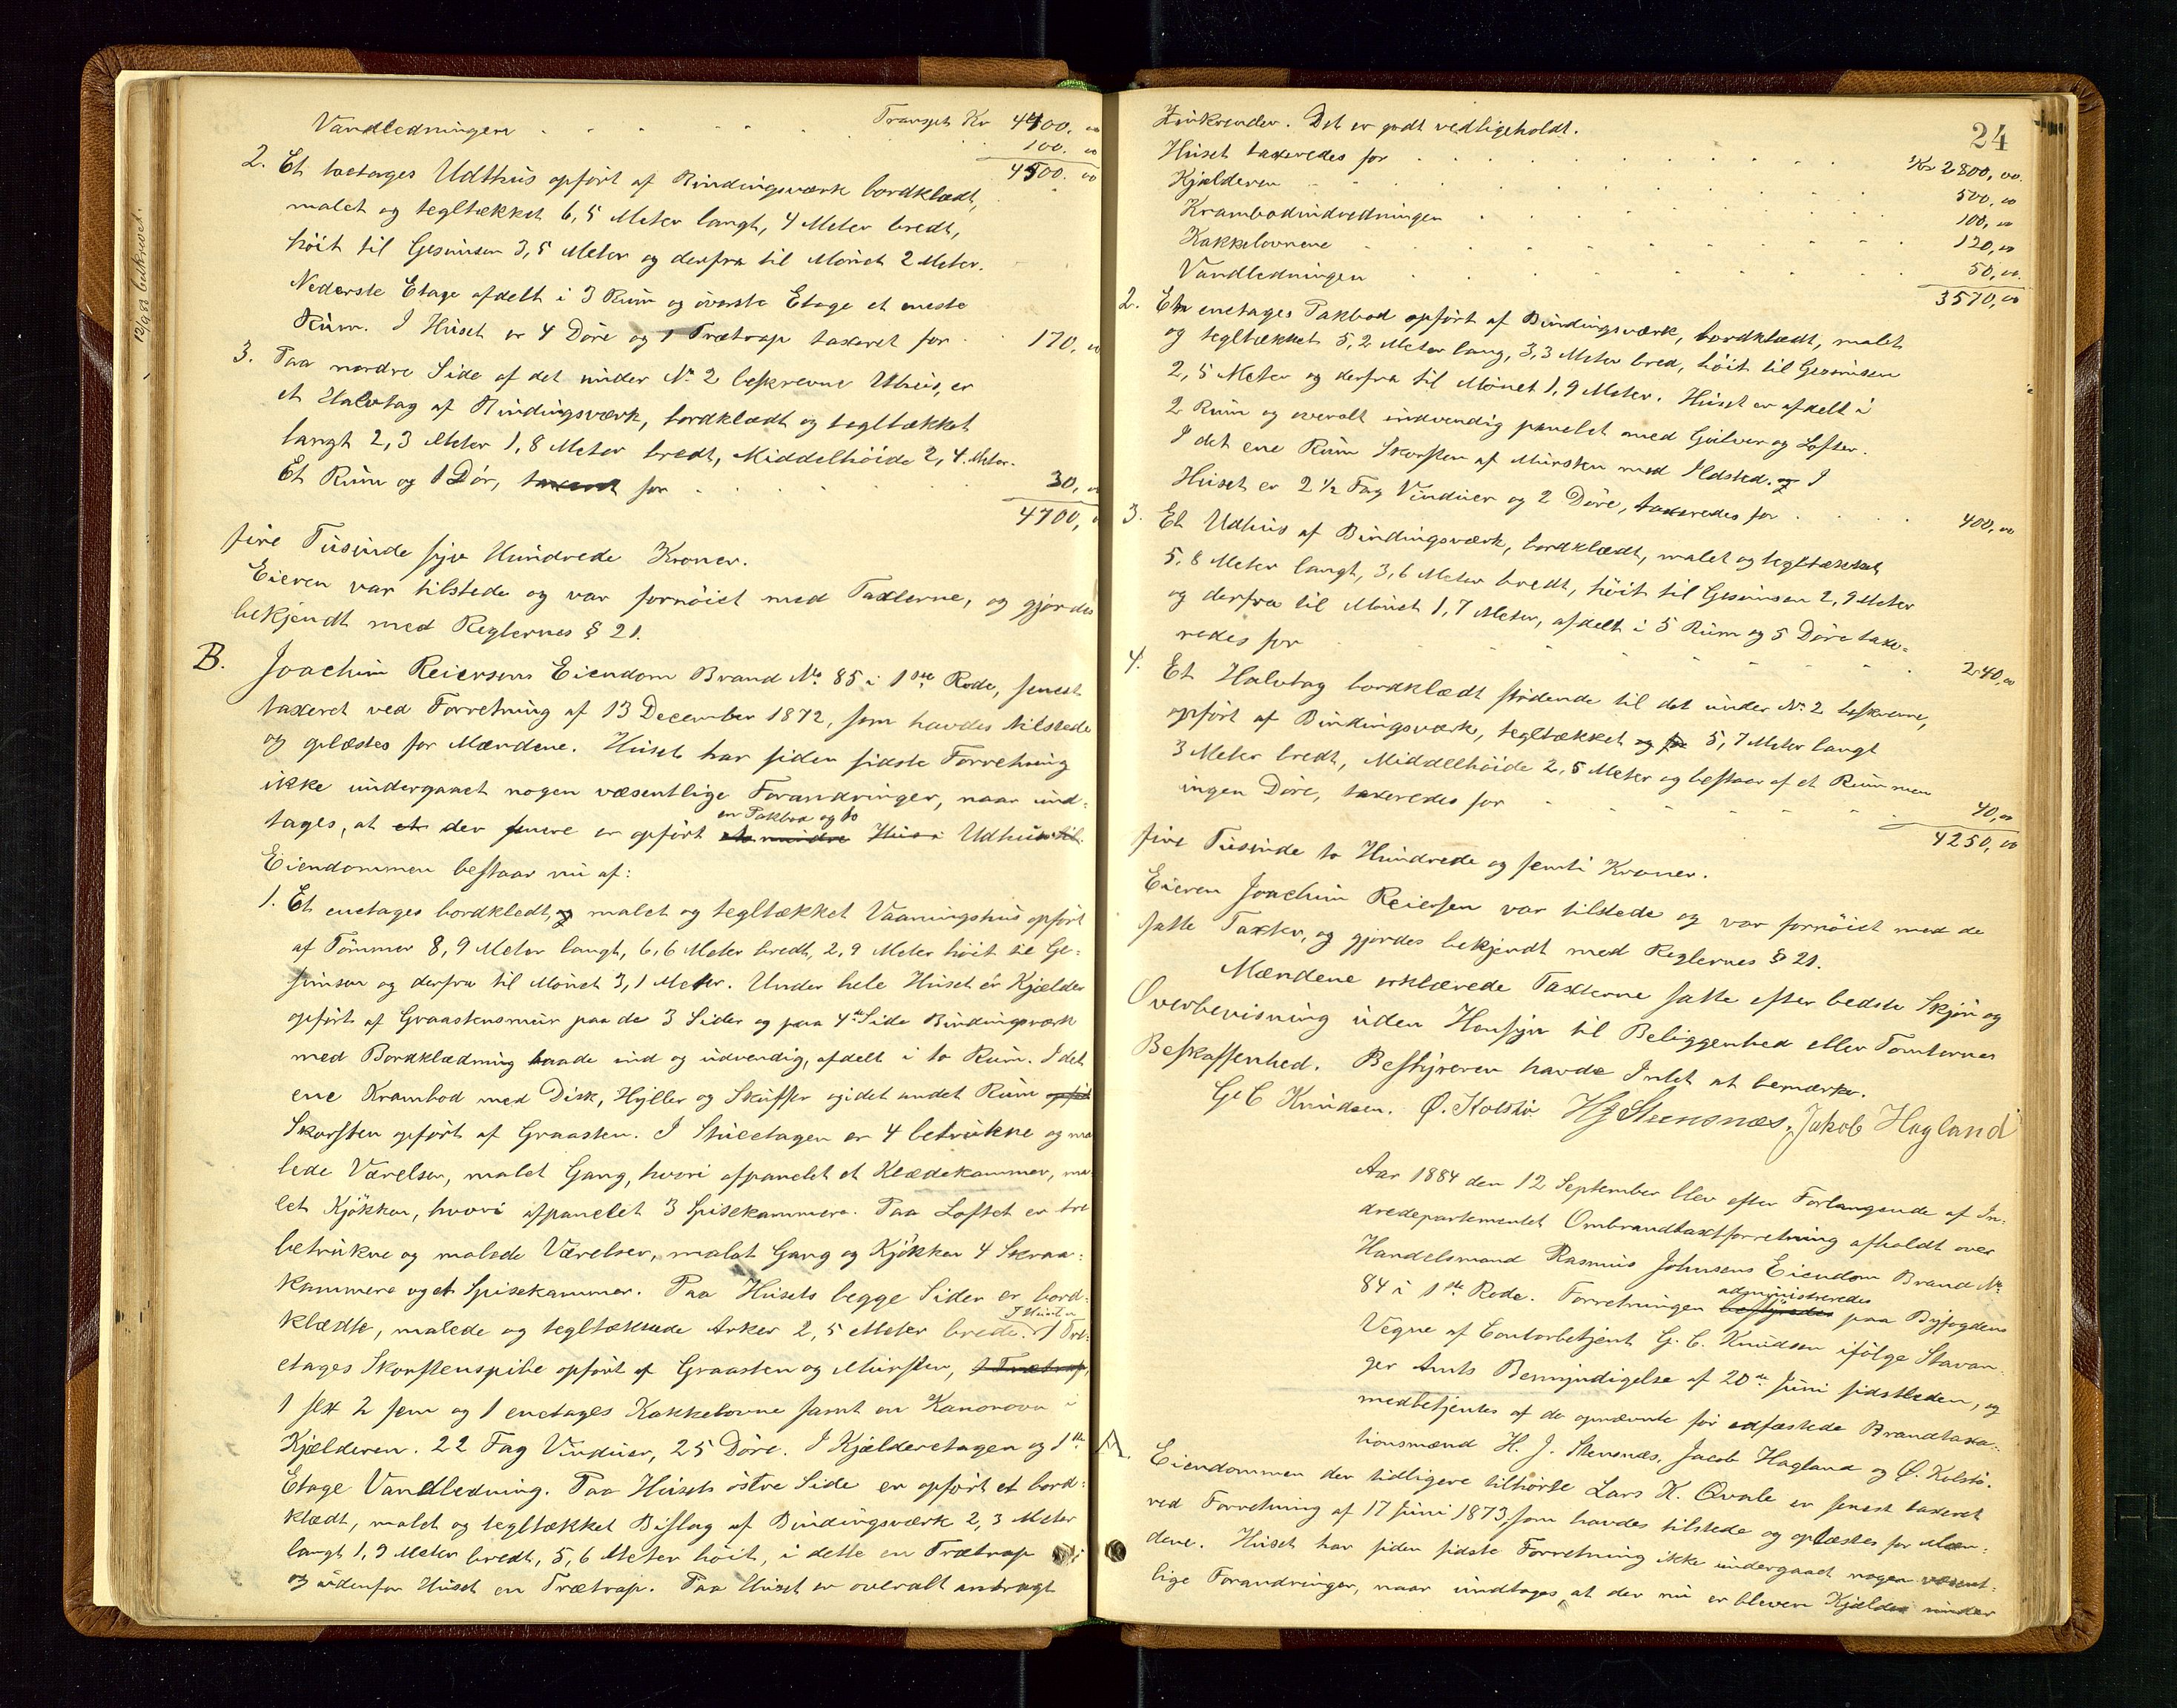 Transpt Kr 4400, 00
Vandledningen . . . . . . 100. 00
4500. 00
2. Et toetages Udthus opført af Bindingsværk bordklædt,
malet og tegltækket 6,5 Meter langt, 4 Meter bredt,
høit til Gesimsen 3,5 Meter og derfra til Mønet 2 Meter.
Nederste Etage afdelt i 3 Rum og øverste Etage et eneste
Rum. I Huset er 4 Døre og 1 Trætrap taxeret for . . 170, 00
3. Paa nordre Side af det under No 2 beskrevne Uthus, er
et Halvtag af Bindingsværk, bordklædt og tegltækket
langt 2,3 Meter 1,8 Meter bredt, Middelhøide 2,4. Meter.
Et Rum og 1 Dør, taxeret for . . . . . 30, 00
4700, 00
fire Tusinde syv Hundrede Kroner.
Eieren var tilstede og var fornøiet med Taxterne, og gjordes
bekjendt med Reglernes § 21.
B. Joachim Reiersens Eiendom Brand No. 85 i 1ste Rode, senest
taxeret ved Forretning af 13 December 1872, som havdes tilstede
og oplæstes for Mændene. Huset har siden sidste Forretning
ikke undergaaet nogen væsentlige Forandringer, naar und-
en Pakbod og to
tages, at et der senere er opført et mindre Hus i Udhuse til.
Eiendommen bestaar nu af:
1. Et enetages bordkledt, og malet og tegltækket Vaaningshus opført
af Tømmer 8,9 Meter langt, 6,6 Meter bredt, 2,9 Meter høit til Ge-
simsen og derfra til Mønet 3,1 Meter. Under hele Huset er Kjælder
opført af Graastensmur paa de 3 Sider og paa 4de Side Bindingsværk
med Bordklædning baade ind og udvendig, afdelt i to Rum. I det
ene Krambod med Disk, Hyller og Skuffer og i det andet Rum opført
Skorsten opført af Graasten. I Stueetagen er 4 betrukne og ma
lede Værelser, malet Gang, hvori afpanelet et Klædekammer, ma-
let Kjøkken, hvori afpanelet 3 Spisekammere. Paa Loftet er tre
betrukne og malede Værelser, malet Gang og Kjøkken 4 Skraa-
kammere og et Spisekammer. Paa Husets begge Sider er bord-
I Huset er
klædte, malede og tegltækkede Arker 2,5 Meter brede. 1 Tre-
etages Skorstenspibe opført af Graasten og Mursten, 1 Trætrap,
1 sex 2 fem og 1 enetages Kakkelovne samt en Kanonovn i
Kjælderen. 22 Fag Vinduer, 25 Døre. I Kjælderetagen og 1ste
Etage Vandledning. Paa Husets østre Side er opført et bord-
klædt, malet og tegltækket Bislag af Bindingsværk 2,3 Meter
langt 1,9 Meter bredt, 5,6 Meter høit, i dette en Trætrap
og udenfor Huset en Trætrap. Paa Huset er overalt anbragt
12/9 88 beskrevet.
24
Zinkrender. Det er godt vedligeholdt.
Huset taxeredes for . . . . . . Kr 2800, 00.
Kjælderen . . . . . . 500, 00
Krambodindredningen . . . . . 100, 00
Kakkelovnene . . . . . . 120, 00
Vandledningen . . . . . . 50, 00.
3570, 00
2. En enetages Pakbod opført af Bindingsværk, bordklædt, malet
og tegltækket 5,2 Meter lang, 3,3 Meter bred, høit til Gesimsen
2,5 Meter og derfra til Mønet 1,9 Meter. Huset er afdelt i
2 Rum og overalt indvendig panelet med Gulver og Lofter.
I det ene Rum Skorsten af Mursten med Ildsted. og I
Huset er 2 1/2 Fag Vinduer og 2 Døre, taxeredes for . . . 400, 00
3. Et Udhus af Bindingsværk, bordklædt, malet og tegltækket
5,8 Meter langt, 3,6 Meter bredt, høit til Gesimsen 2,9 Meter
og derfra til Mønet 1,7 Meter, afdelt i 5 Rum og 5 Døre taxe-
redes for . . . . . . 240, 00
4. Et Halvtag bordklædt stødende til det under No. 2 beskrevne,
opført af Bindingsværk, tegltækket og for 5,7 Meter langt
3 Meter bredt, Middelhøide 2,5 Meter og bestaar af et Rum men
ingen Døre, taxeredes for . . . . . 40, 00
4250, 00
fire Tusinde to Hundrede og femti Kroner.
Eieren Joachim Reiersen var tilstede og var fornøiet med de
satte Taxter, og gjordes bekjendt med Reglernes § 21.
Mændene erklærede Taxterne satte efter bedste Skjøn og
Overbevisning uden Hensyn til Beliggenhed eller Tomternes
Beskaffenhed. Bestyreren havde Intet at bemærke.
G. C Knudsen. Ø. Kolstø H J Steensnæs. Jakob Hagland
Aar 1884 den 12 September blev efter Forlangende af In-
dredepartementet Ombrandtaxtforretning afholdt over
Handelsmand Rasmus Johnsens Eiendom Brand No
84 i 1ste Rode. Forretningen bestyredes paa Byfogdens
administreredes
Vegne af Contorbetjent G. C. Knudsen ifølge Stavan-
ger Amts Bemyndigelse af 20de Juni sidstleden, og
medbetjentes af de opnævnte før edfæstede Brandtaxa-
tionsmænd H. J. Steensnæs, Jacob Hagland og Ø. Kolstø.
A. Eiendommen der tidligere tilhørte Lars K. Qvale er senest taxeret
ved Forretning af 17 Juni 1873, som havdes tilstede og oplæstes for Mæn-
dene. Huset har siden sidste Forretning ikke undergaaet nogen væsent-
lige Forandringer, naar undtages at der nu er bleven Kjælder under